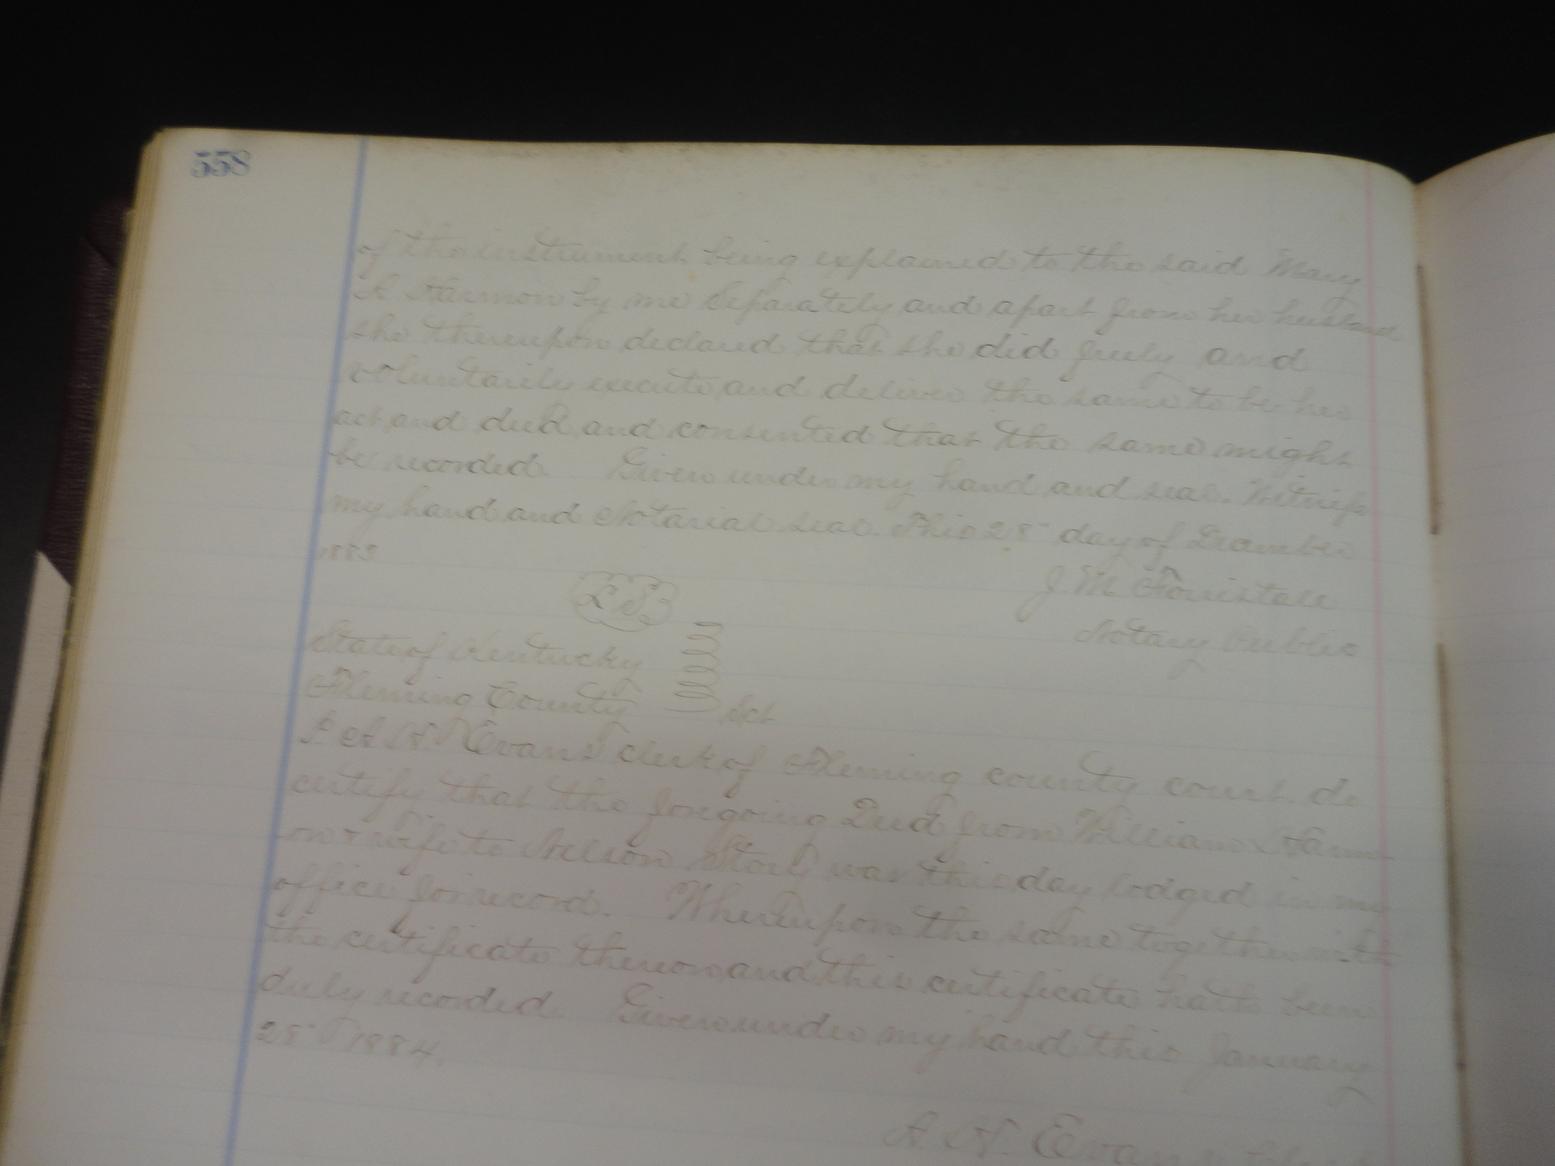 558
of the instrument being explained to the said Mary
A Harmon by me separately and apart from her husband
she thereupon declared that she did freely and
voluntarily execute and deliver the same to be her
act and deed and consented that the same might
be recorded. Given under my hand and seal. Witness
my hand and Notarial seal. This 28" day of December
1883
J. M.
L S
Notary Public
State of Kentucky
Fleming County Sct
I A N Evans clerk of Fleming county court do
certify that the foregoing Deed from William Harm
on & wife to was this day lodged in my
office for record. Whereupon the same together with
the certificate thereon and this certificate hath been
duly recorded. Given under my hand this January
28" 1884.
A. N. Evans